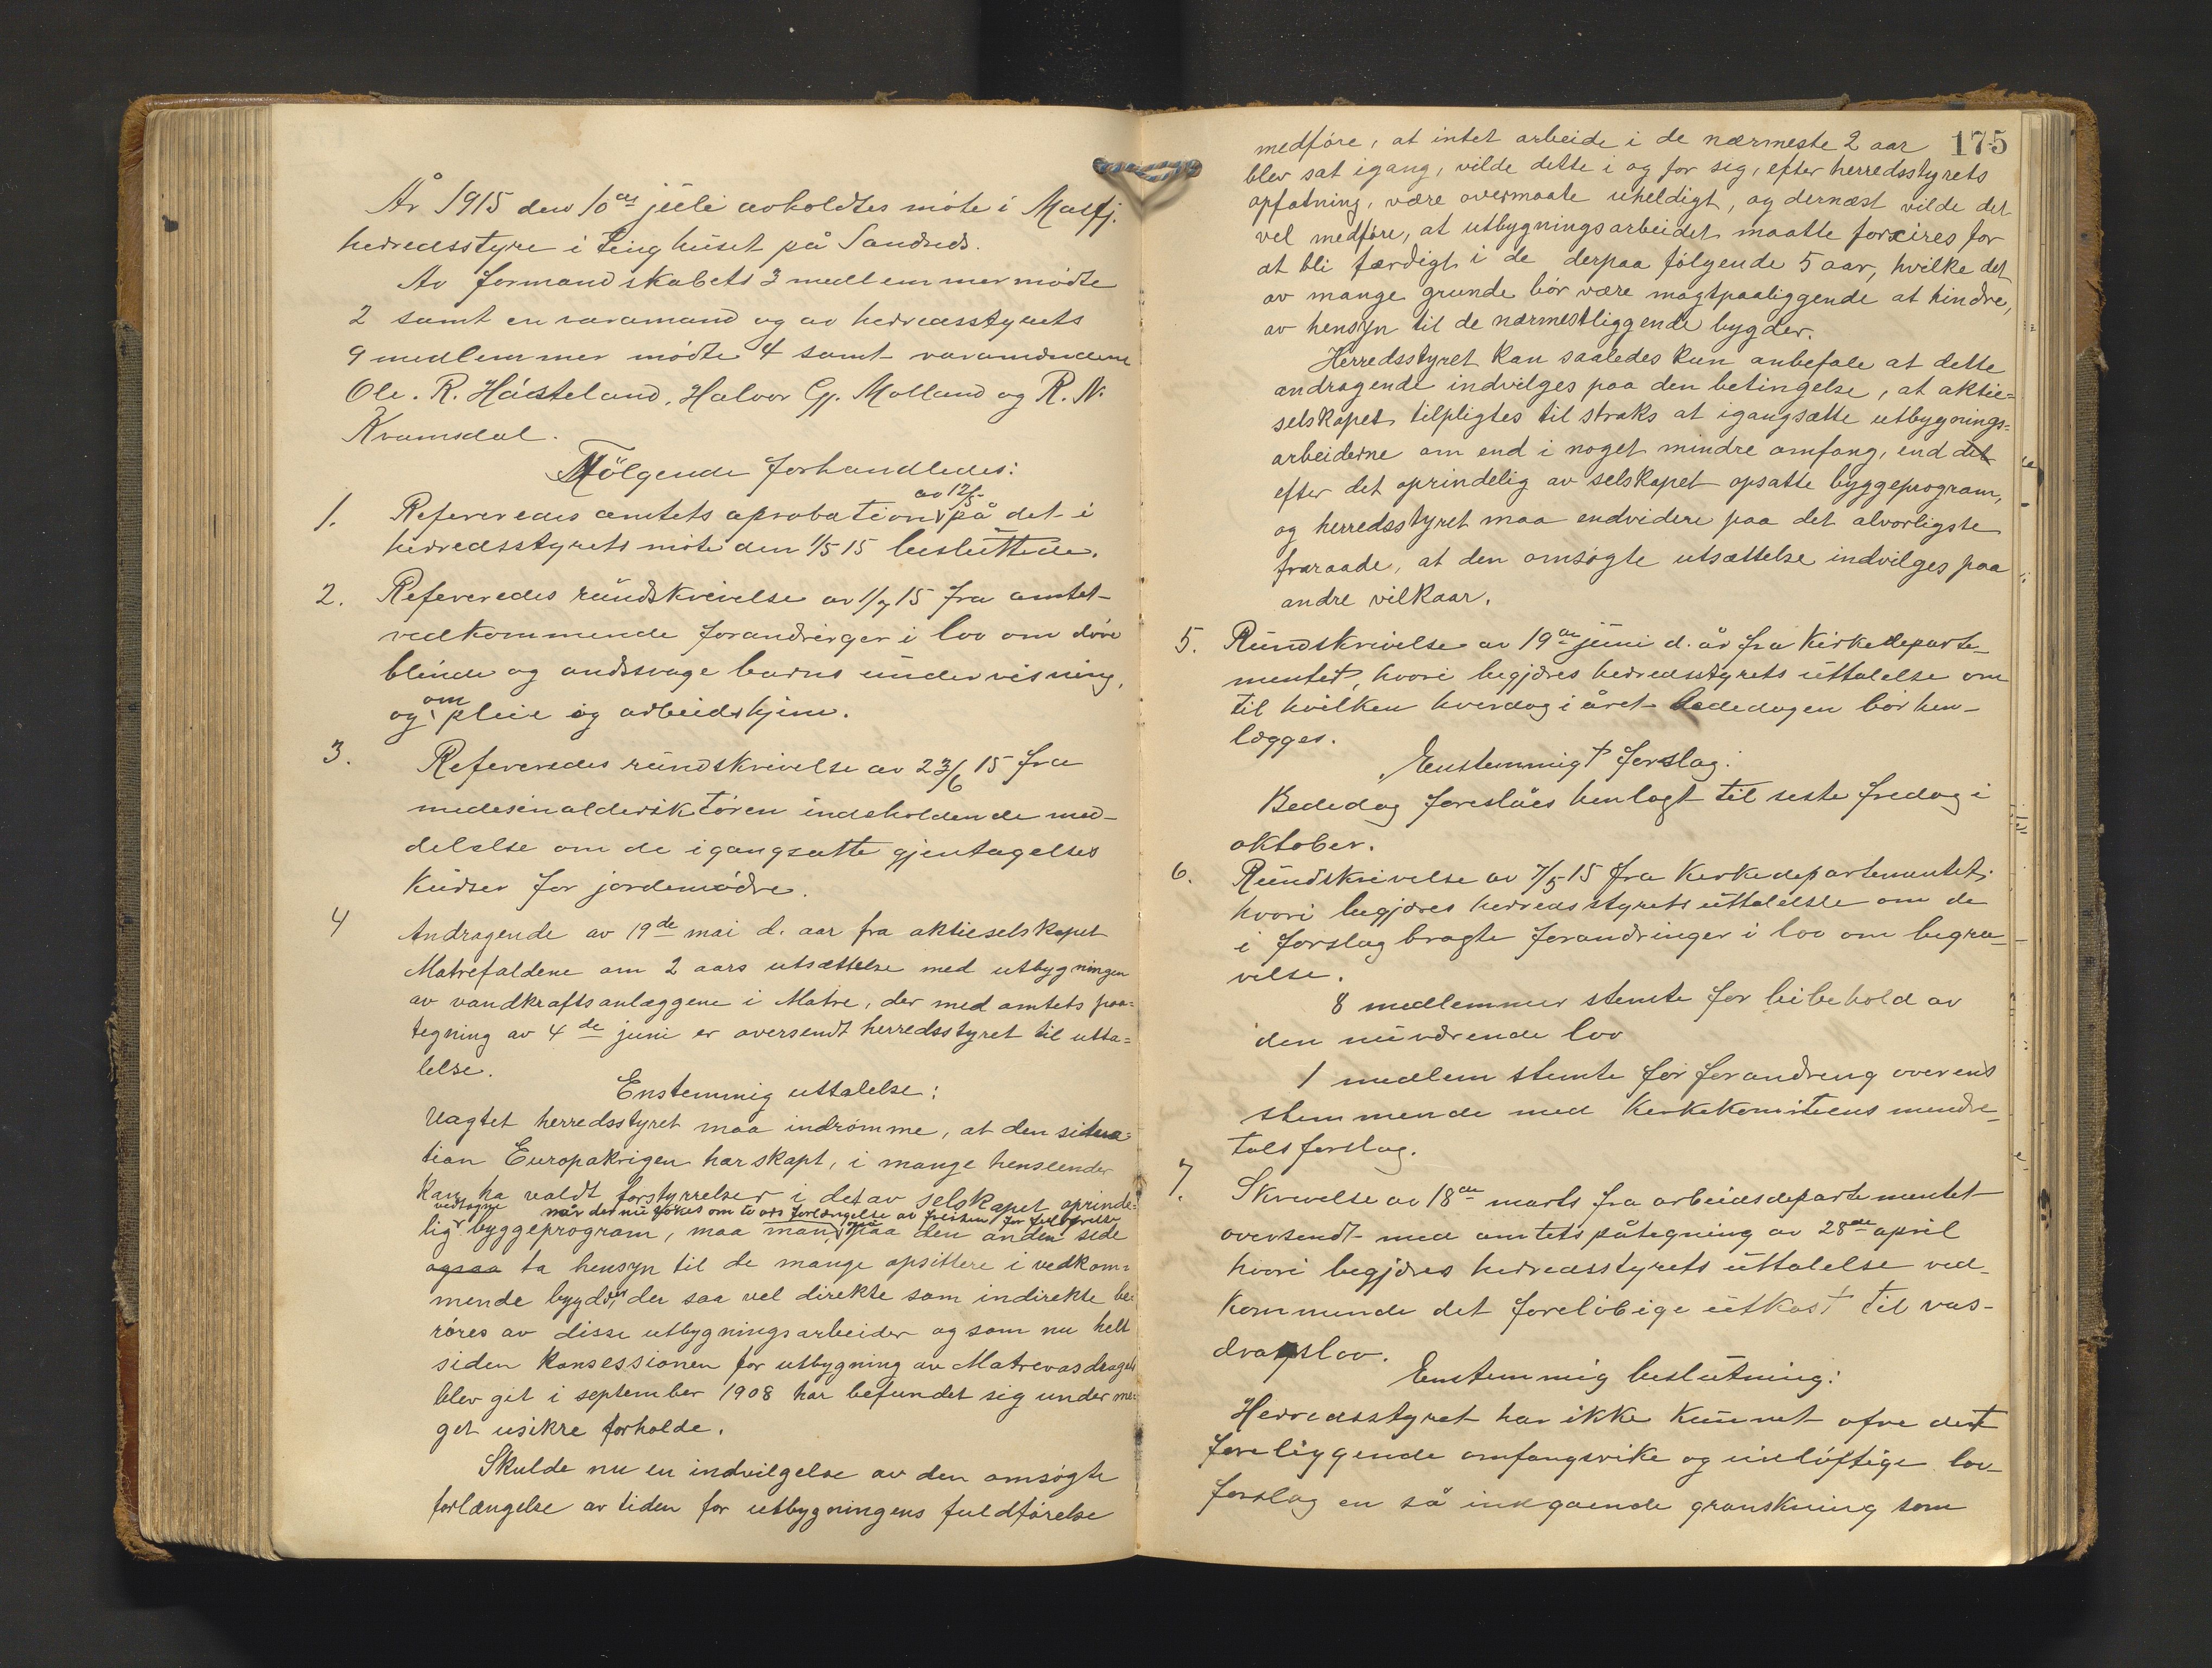 År 1915 den 10de juli avholdtes møte i Masfj.
herredsstyre i tinghuset på Sandnds.
Av formandskabets 3 medlemmer mødte
2 samt en varamand og av herredsstyrets
9 medlemmer mødte 4 samt varamændene
Ole. R. Håsteland, Halvor Gj. Molland og R. N.
Kvamsdal.
Følgende forhandledes:
1. Refereredes amtets aprobation av 12/5 på det i
herredsstyrets møte den 1/5 15 besluttede.
2. Refereredes rundskrivelse av 1/7 15 fra amtet
vedkommende forandringer i lov om døve
blinde og andssvage barns undervisning,
og om pleie og arbeidshjem.
3. Refereredes rundskrivelse av 23/6 15 fra
medesinaldirektøren indeholdende med-
delelse om de igangsatte gjentagelses
kurser for jordemødre.
4 Andragende av 19de mai d. aar fra aktieselskapet
Matrefaldene om 2 aars utsættelse med utbygningen
av vandkraftsanlæggene i Matre, der med amtets paa=
tegning av 4de juni er oversendt herredsstyret til utta=
lelse.
Enstemmig uttalelse:
Uagtet herredsstyret maa indrømme, at den situa=
tion Europakrigen har skapt, i mange henseender
kan ha voldt forstyrrelser i det av selskapet oprinde=
lig vedtagne byggeprogram, maa man når der nu søkes om to års forlængelse av fristen for fuldførelse også paa den anden side
ogsaa ta hensyn til de mange opsittere i vedkom=
mende bygder, der saa vel direkte som indirekte be=
røres av disse utbygningsarbeider og som nu helt
siden konsessionen for utbygning av Matrevasdraget
blev git i september 1908 har befundet sig under me=
get usikre forholde.
Skulde nu en indvilgelse av den omsøgte
forlængelse av tiden for utbygningens fuldførelse
175
medføre, at intet arbeide i de nærmeste 2 aar
blev sat igang, vilde dette i og for sig, efter herredsstyrets
opfatning, være overmaate uheldigt, og dernæst vilde det
vel medføre, at utbygningsarbeidet maatte forceres for
at bli færdigt i de derpaa følgende 5 aar, hvilke det
av mange grunde bør være magtpaaliggende at hindre,
av hensyn til de nærmestliggende bygder.
Herredsstyret kan saaledes kun anbefale at dette
andragende indvilges paa den betingelse, at aktie=
selskapet tilpligtes til straks at igangsætte utbygnings=
arbeiderne om end i noget mindre omfang, end det
efter det oprindelig av selskapet opsatte byggeprogram,
og herredsstyret maa endvidere paa det alvorligste
fraraade, at den omsøgte utsættelse indvilges paa
andre vilkaar.
5. Rundskrivelse av 19de juni d. år fra Kirkedeparte-
mentet, hvori begjæres herredsstyrets uttalelse om
til hvilken hverdag i året bededagen bør hen-
lægges.
Enstemmigt forslag.
Bededag foreslåes henlagt til siste fredag i
oktober.
6. Rundskrivelse av 7/5 15 fra Kirkedepartementet.
hvori begjæres herredsstyrets uttalelse om de
i forslag bragte forandringer i lov om begra-
velse.
8 medlemmer stemte for beibehold av
den nuværende lov
1 medlem stemte for forandring overens
stemmende med kirkekomiteens mindre-
talsforslag.
7. Skrivelse av 18de marts fra arbeidsdepartementet
oversendt med amtets påtegning av 28de april
hvori begjæres herredsstyrets uttalelse ved-
kommende det foreløbige utkast til vas-
dragslov.
Enstemmig beslutning:
Herredsstyret har ikke kunnet ofre det
foreliggende omfangsrike og vidløftige lov-
forslag en så indgående granskning som